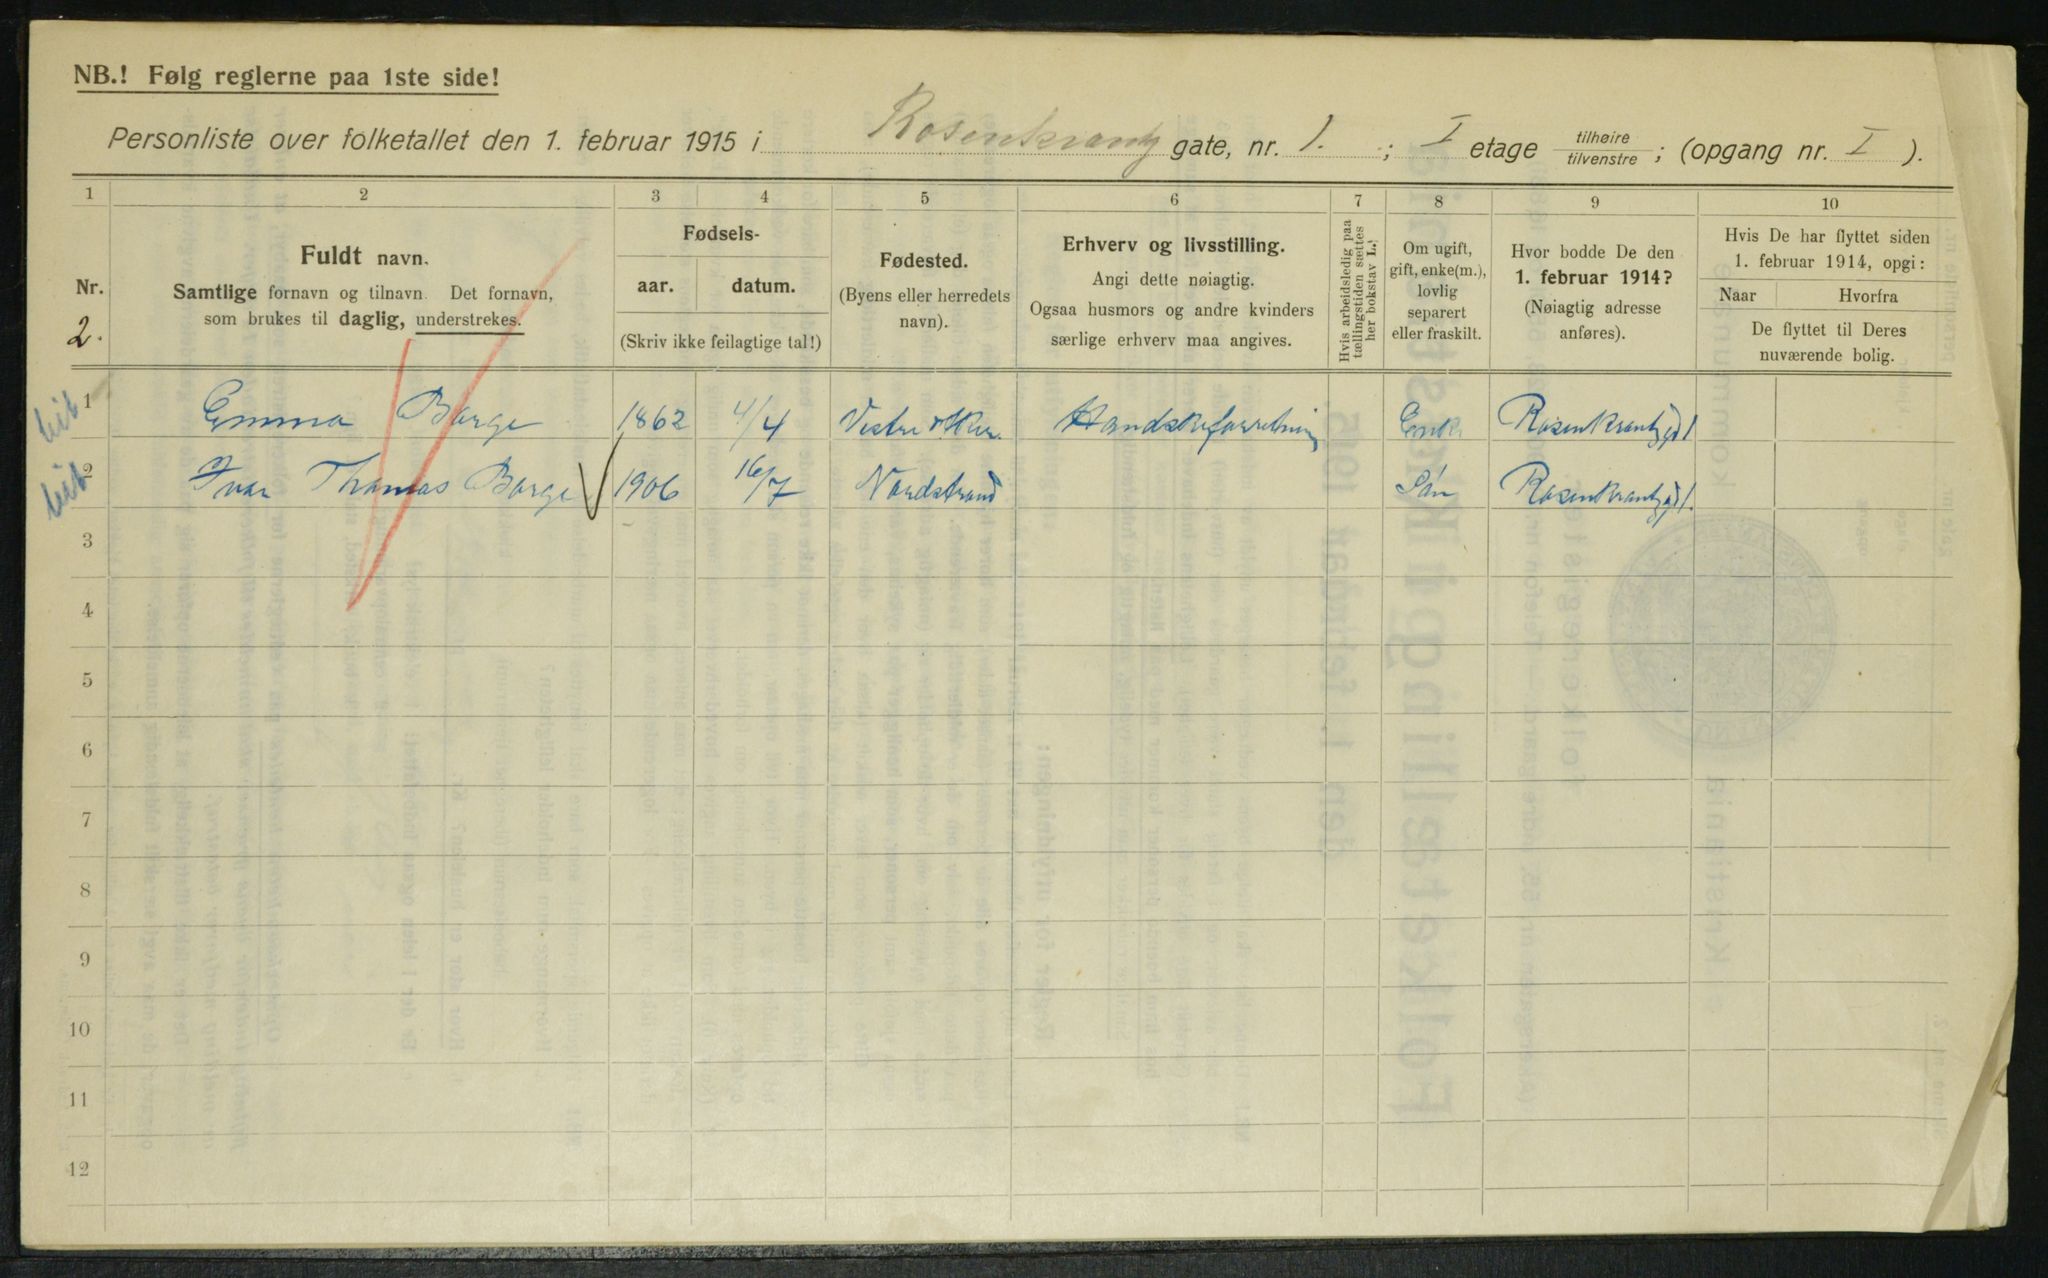 NB.! Følg reglerne paa 1ste side!
Personliste over folketallet den 1. februar 1915 i Rosenkrantz gate, nr. 1. ; I etage tilhøire/tilvenstre ; (opgang nr. I ).
1 2 3 4 5 6 7 8 9 10
Nr.
2.
Fuldt navn.
Samtlige fornavn og tilnavn. Det fornavn,
som brukes til daglig, understrekes.
Fødsels-
aar. datum.
(Skriv ikke feilagtige tal!)
Fødested.
(Byens eller herredets
navn).
Erhverv og livsstilling.
Angi dette nøiagtig.
Ogsaa husmors og andre kvinders
særlige erhverv maa angives.
Hvis arbeidsledig paa
tællingstiden sættes
her bokstav L.)
Om ugift,
gift, enke(m.),
lovlig
separert
eller fraskilt.
Hvor bodde De den
1. februar 1914?
(Nøiagtig adresse
anføres).
Hvis De har flyttet siden
1. februar 1914, opgi:
Naar Hvorfra
De flyttet til Deres
nuværende bolig.
1 Emma Borge 1862 4/4 Vestre Aker. Handskeforretning Enke Rosenkrantzgd 1
2 Ivar Thomas Borge 1906 16/7 Nordstrand Sön Rosenkrantzgd 1.
3
4
5
6
7
8
9
10
11
12